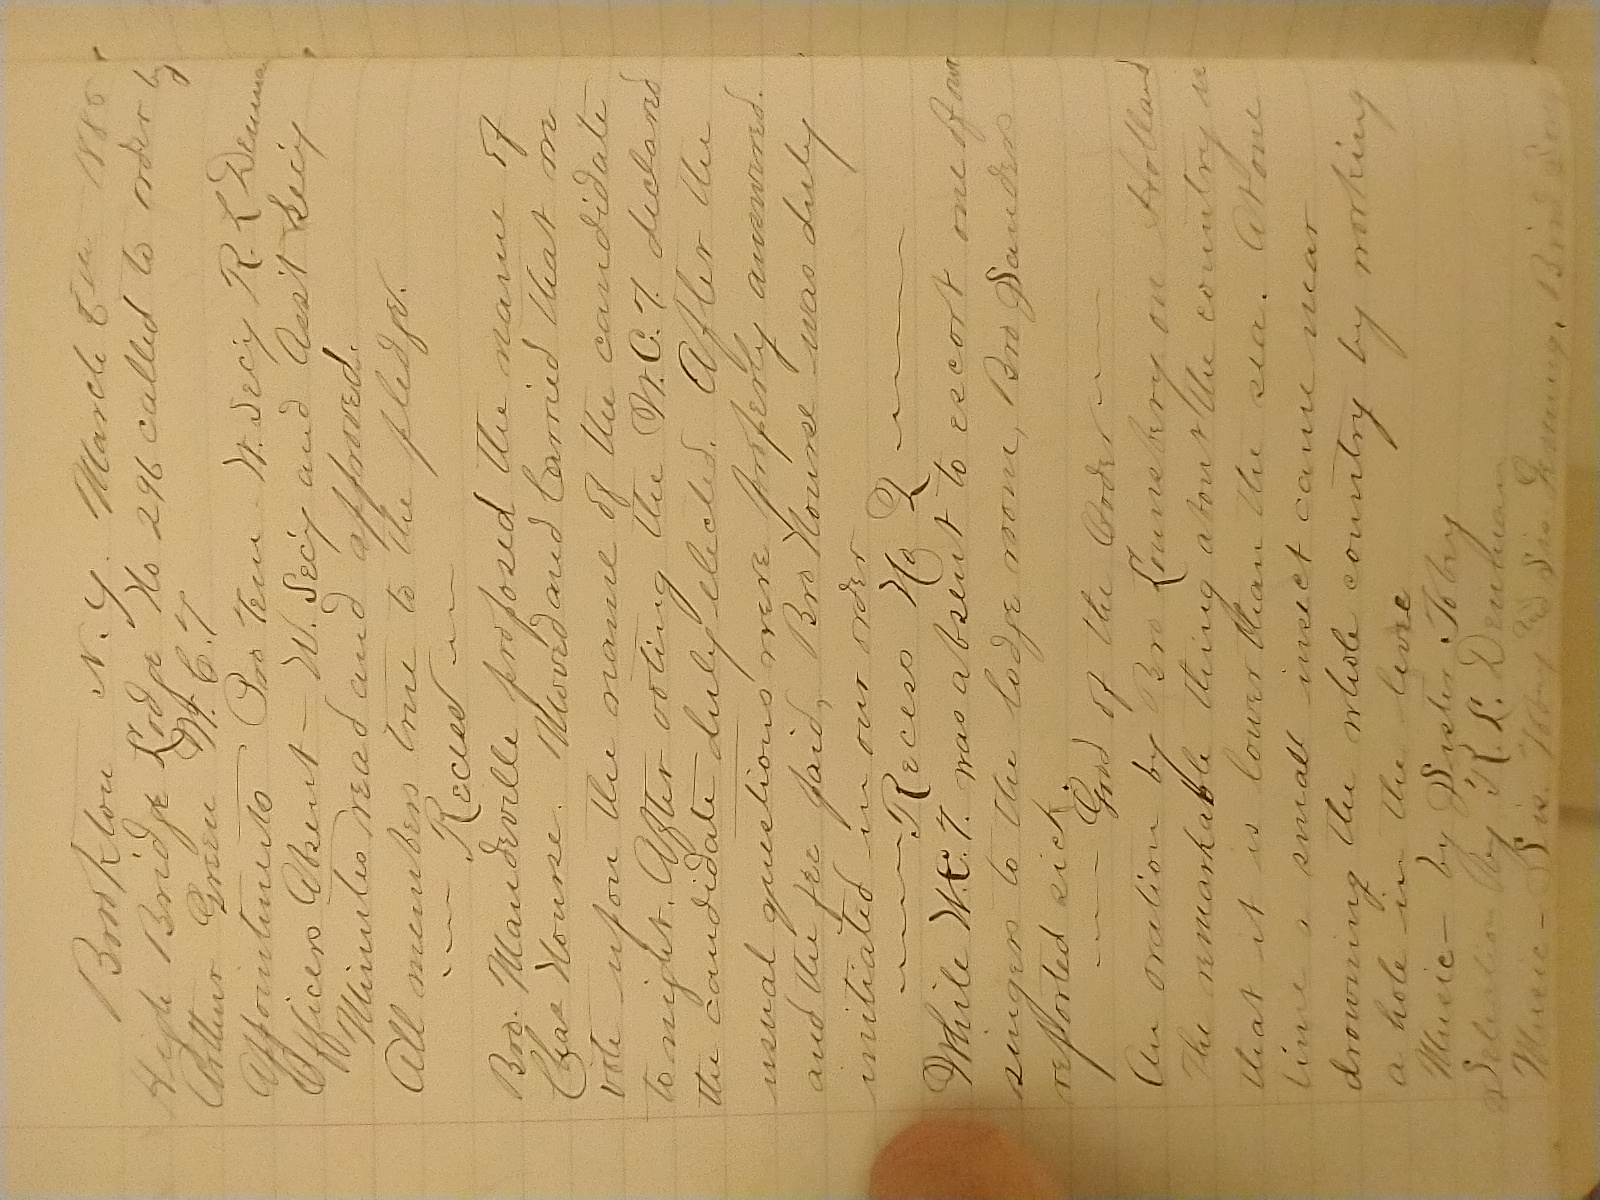 N.Y. March 1886
High Bridge Lodge No 296 called to order by
Arthur Green W.C.T
Appointments Pro tem - W. Secy R L Denman
Officers Absent - W. Secy and Asst Secy
Minutes read and approved.
All members true to the pledge.
Recess
Bro. Mandeville proposed the name of
Chas Hourse. Moved and Carried that we
vote upon the name of the candidate
tonight. After voting the W.C.T. declared
the candidate duly elected. After the
usual questions were properly answered.
and the fee paid, Bro Hourse was duly
initiated in our order
Recess No 2
While W.C.T. was absent to escort one of our
singers to the lodge room, Bro Sanders
reported sick
Good of the Order
An oration by Bro Lounsbry on Holland
The remarkable thing about the country is
that it is lower than the sea. At one
time a small insect came near
drowning the whole country by making
a hole in the levee
Music - by Sister Tobry
Selection by R.L. Denman
Music - Sis. Tobry & Sis Bird Song